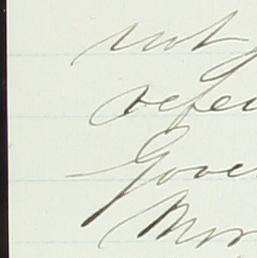 not
refe
Gove
Mor